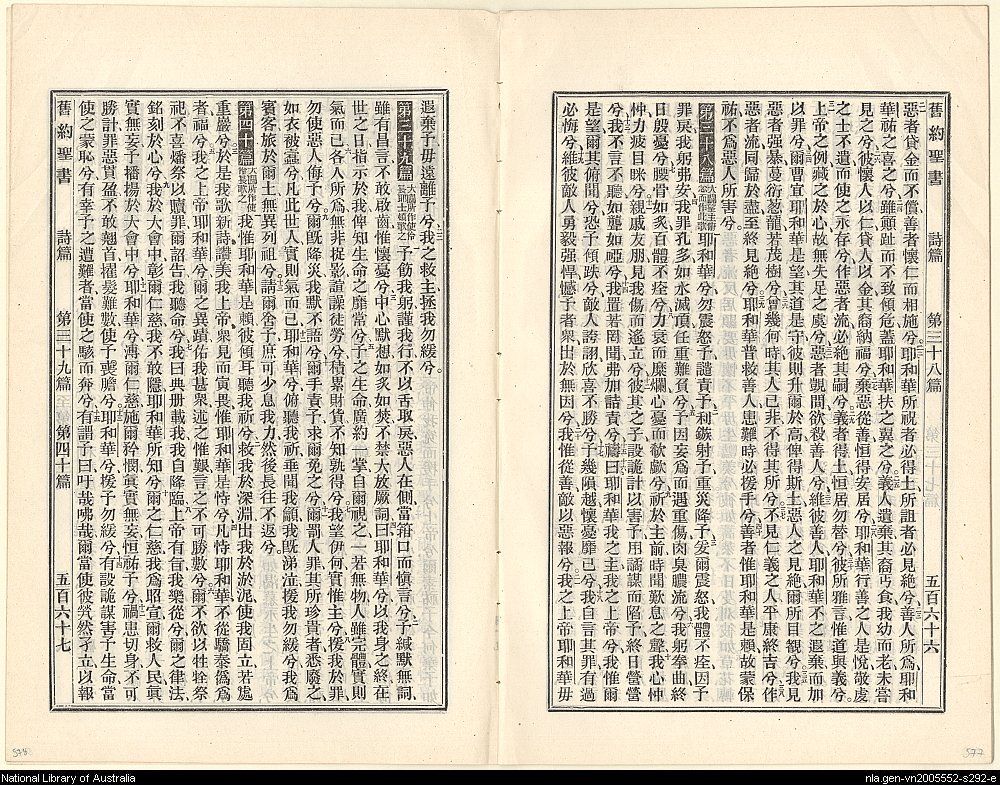 舊約聖書 詩篇 第三十八篇 五百六十六
惡者貸金而不償善者懷仁而相施兮耶和華所祝者必得土所詛者必見絶兮善人所為耶和
華祐之喜之兮雖顚趾而不致傾危蓋耶和華扶之翼之兮義人遺棄其裔丐食我幼而老未嘗
見之兮彼懷仁人以仁貸人以金其裔納福兮棄惡從善恒得安居兮耶和華行善之人是悅敬虔
之士不遺而使之永存兮作惡者流必絶其嗣兮義者得土恒居勿替兮彼所雅言惟道與義兮
上帝之例藏之於心故無失足之虞兮惡者覬間欲殺善人兮維彼善人耶和華不之遐棄而加
以罪兮爾曹宜耶和華是望其道是守彼則升爾於高俾得斯土惡人之見絶爾所目覩兮我見
惡者強暴蔓衍葱蘢若茂樹兮曾幾何時其人已非不得其所兮不見仁義之人平康終吉兮作
惡者流同歸於盡至終見絶兮耶和華普救善人患難時必援手兮善者惟耶和華是賴故蒙保
祐不爲惡人所害兮
第三十八篇 耶和華兮勿震怒予譴責予利鏃射予重災降予爰爾震怒我體不痊因予
罪戾我躬弗安我罪孔多如水滅頂任重難負兮予因妄爲而遇重傷肉臭膿流兮我躬拳曲終
日殷憂兮腰骨如炙百體不痊兮力衰而糜爛心憂而欷歔兮祈於主前時聞歎息之聲我心忡
忡力疲目眯兮親戚友朋見我傷而遙立兮彼其之子設詭計以害予用譎謀而陷予終日營營
兮我不言不聽如聾如啞兮我置若罔聞弗加詰責兮禱曰耶和華我之主我之上帝兮我惟爾
是望爾其俯聞兮恐予傾跌兮敵人誇詡欣喜不勝兮予幾隕越懷憂靡已兮我自言其罪有過
必悔兮維彼敵人勇毅强悍憾予者衆出於無因兮我惟從善敵以惡報兮我之上帝耶和華毋
遐棄予毋遠離予兮我之救主拯我勿緩兮
第三十九篇 予飭我躬謹我行不以舌取戾惡人在側當箝口而愼言兮予緘默無詞
雖有昌言不敢啟齒惟懷憂兮中心默想如炙如焚不禁大放厥詞曰耶和華兮以我身之終在
世之日指示於我俾知生命之靡常兮予之生命廣約一掌自爾視之一若無物人雖完體實則
氣而已各人所爲無非捉影諠譟徒勞兮積累財貨不知孰得兮我望伊何實惟主兮援我於罪
勿使惡人侮予兮爾旣降災我默不語兮爾手責予求爾免之兮爾罰人罪其所珍貴者悉廢之
如衣被蠹兮凡此世人實則氣而已耶和華兮俯聽我祈垂聞我籲我旣涕泣援我勿緩兮我爲
賓客旅於爾土無異列祖兮請爾舍予庶可少息我力然後長往不返兮
第四十篇 我惟耶和華是賴彼傾耳聽我祈兮救我於深淵出我於淤泥使我固立若處
重巖兮於是我歌新詩讚美我上帝衆見而寅畏惟耶和華是恃兮凡恃耶和華不從驕泰僞爲
者福兮我之上帝耶和華兮爾之異蹟佑我甚衆述之惟艱言之不可勝數兮爾不欲以牲牷祭
祀不喜燔祭以贖罪爾詔告我聽命兮我曰典册載我我自降臨上帝有旨我樂從兮爾之律法
銘刻於心兮我於大會中彰爾仁慈我不敢隱耶和華所知兮爾之仁慈我爲昭宣爾救人民眞
實無妄予播揚於大會中兮耶和華兮溥爾仁慈施爾矜憫眞實無妄恒祐予兮禍患切身不可
勝計罪惡貫盈不敢翹首擢髮難數使予喪膽兮耶和華兮援予勿緩兮有設詭謀害予生命當
使之蒙恥兮有幸予之遭難者當使之駭而奔兮有謂予曰吁哉咈哉爾當使彼煢然孑立以報
舊約聖書 詩篇 第三十九篇至第四十篇 五百六十七
578
577
National Library of Australia
nla.gen-vn2005552-s292-e